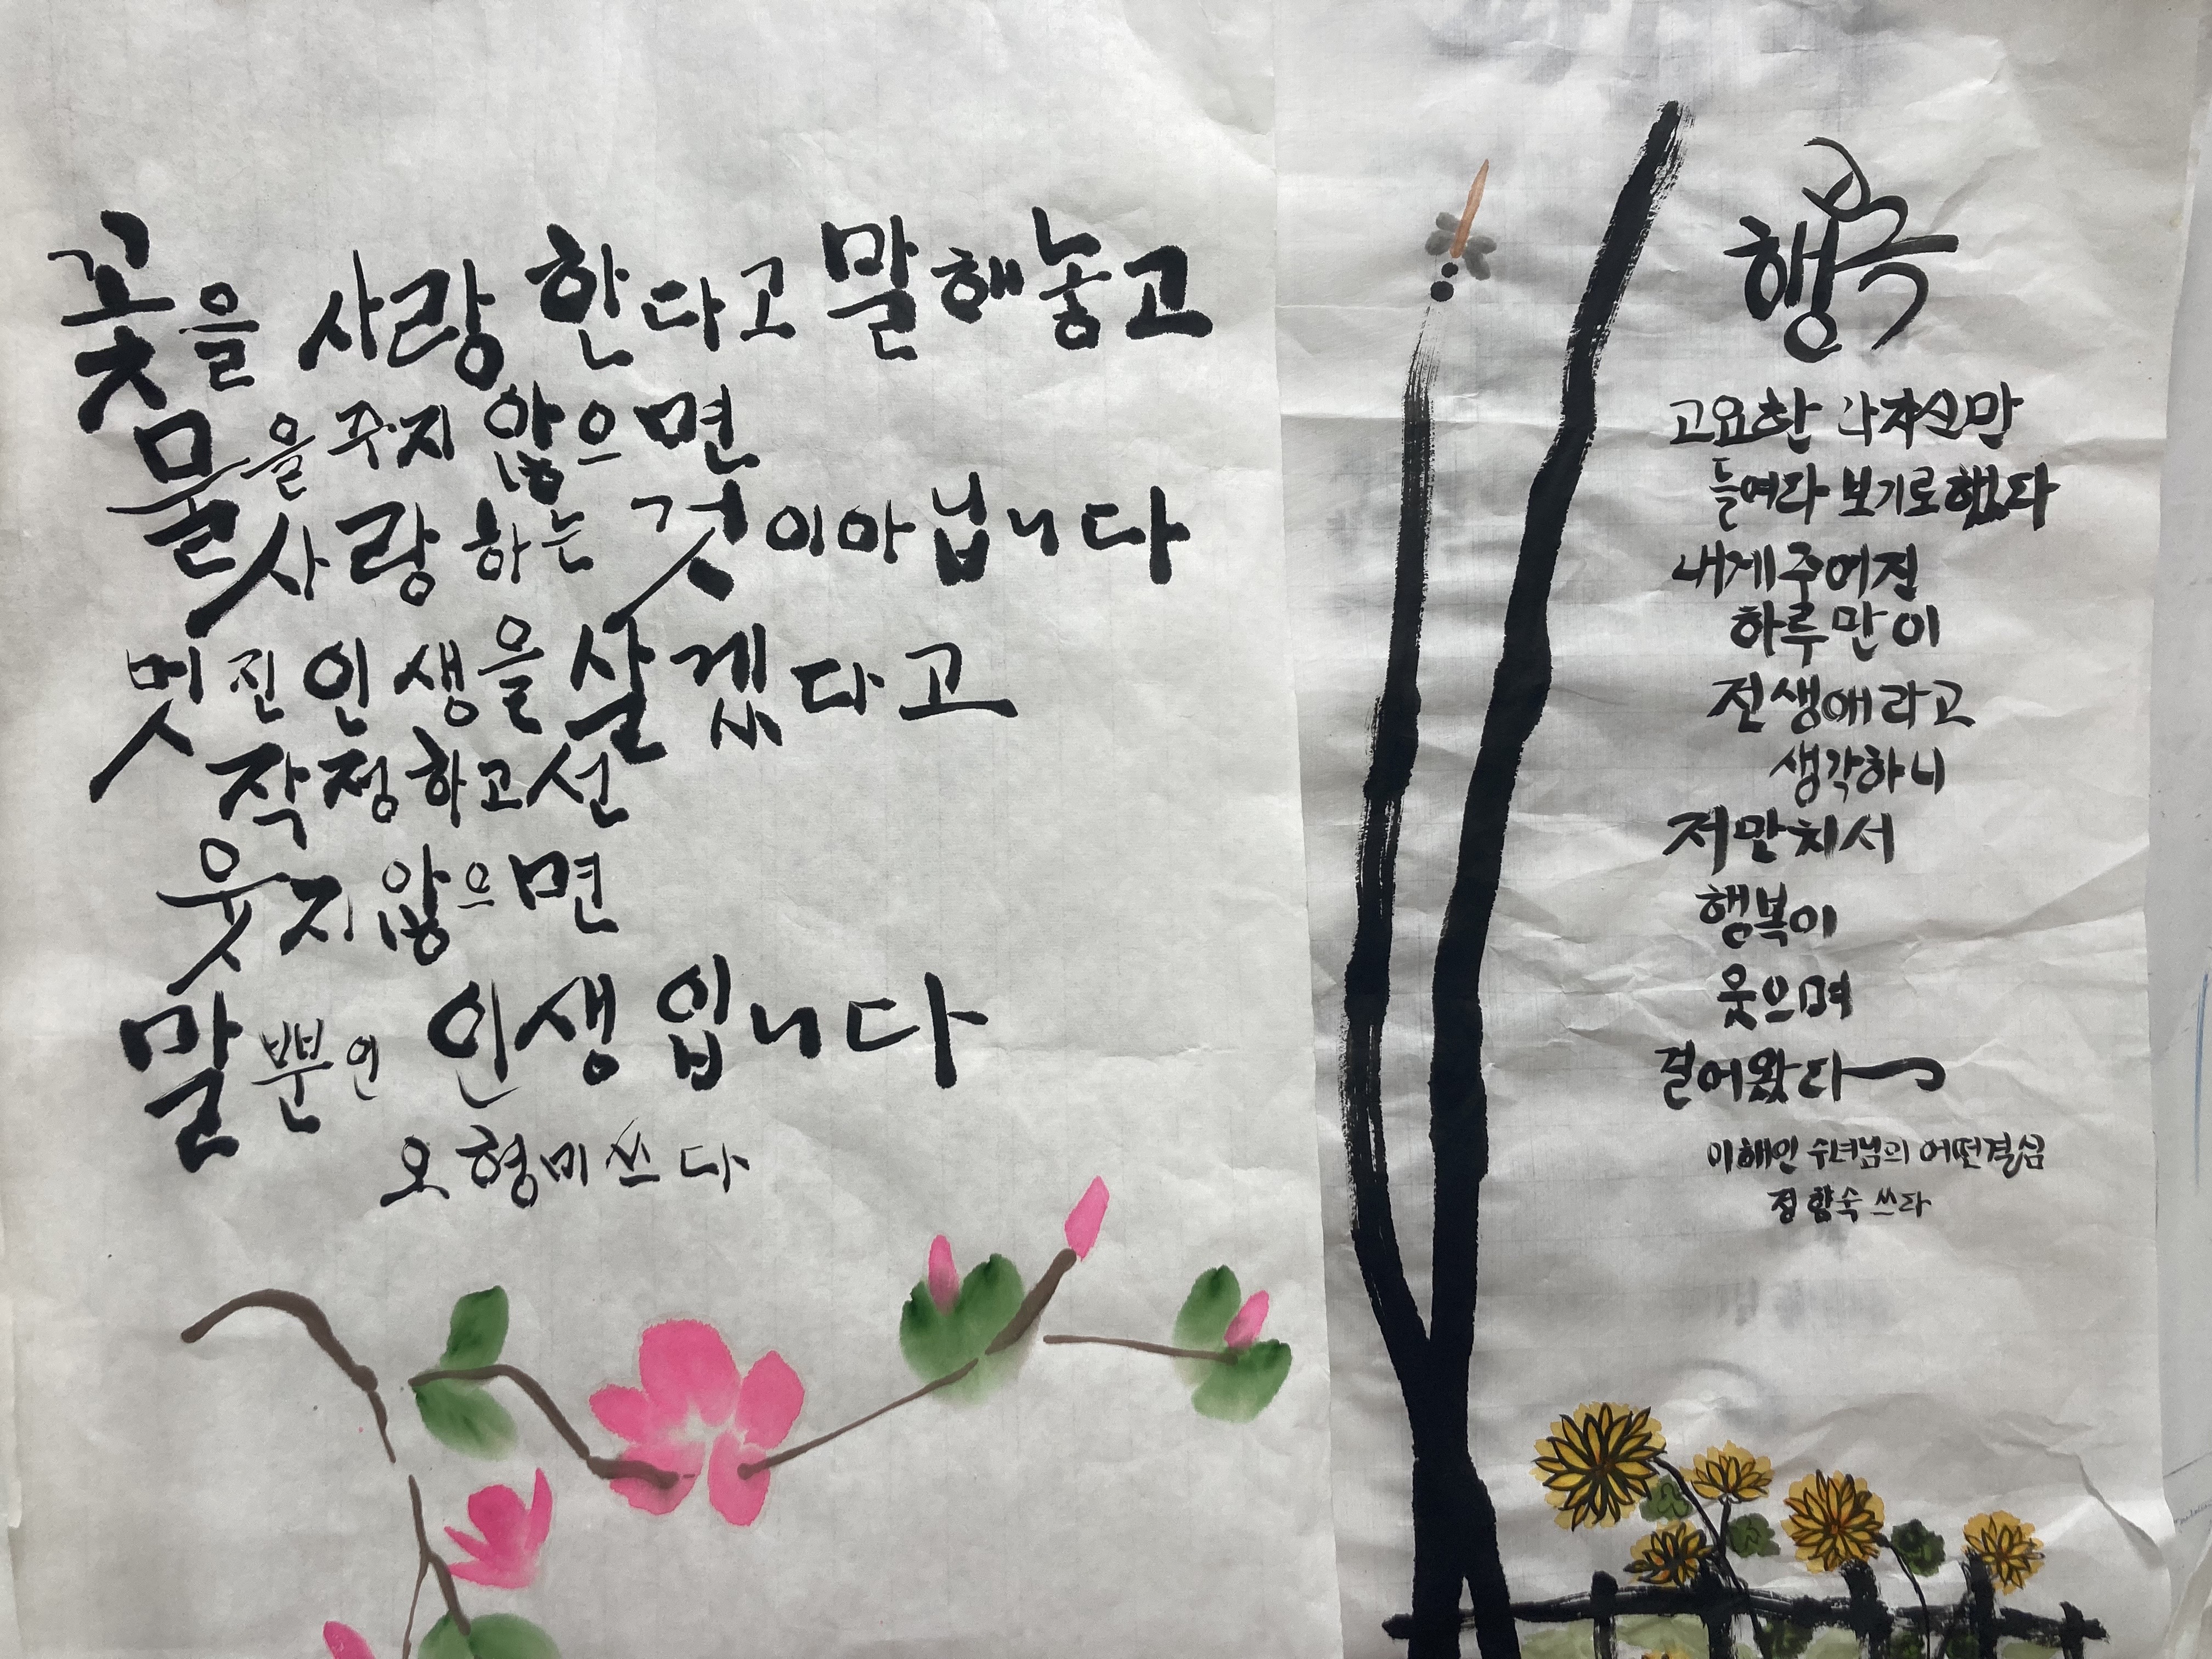 꽃을 사랑한다고 말해놓고
물을 주지 않으면
사랑하는 것이 아닙니다
멋진 인생을 살겠다고
작정하고선
웃지 않으면
말뿐인 인생입니다
오형미 쓰다
행복
고요한 나 자신만
들여다 보기로 했다
내게 주어진
하루만이
전 생애라고
생각하니
저만치서
행복이
웃으며
걸어왔다
이해인 수녀님의 어떤결심
정향숙 쓰다